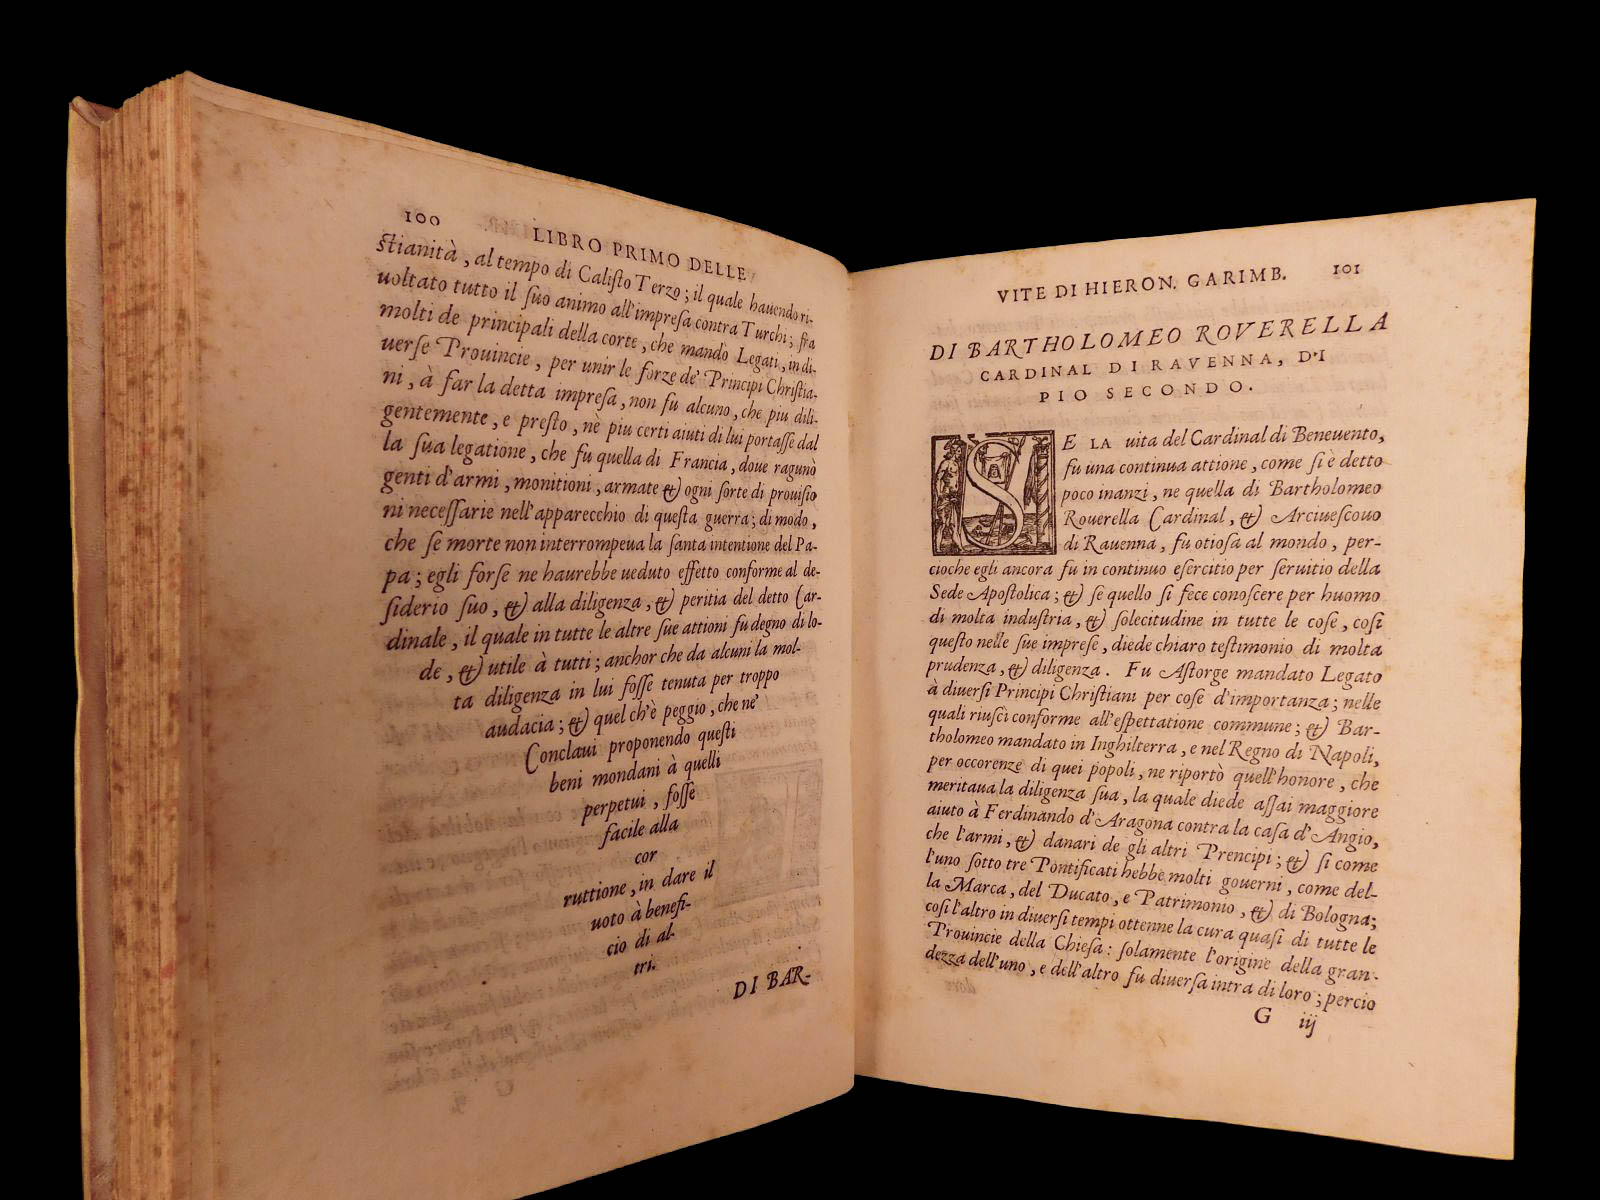 100
LIBRO PRIMO DELLE
ſtianità, al tempo di Caliſto Terzo; il quale hauendo ri-
uoltato tutto il ſuo animo all'impreſa contra Turchi; fra
molti de principali della corte, che mandò Legati, in di-
uerſe Prouincie, per unir le forze de' Principi Chriſtia-
ni, à far la detta impreſa, non fu alcuno, che piu dili-
gentemente, e preſto, nè piu certi aiuti di lui portaſſe dal
la ſua legatione, che fu quella di Francia, doue ragunò
genti d'armi, monitioni, armate & ogni ſorte di prouiſio
ni neceſſarie nell'apparecchio di queſta guerra; di modo,
che ſe morte non interrompeua la ſanta intentione del Pa-
pa; egli forſe ne haurebbe ueduto effetto conforme al de-
ſiderio ſuo, & alla diligenza, & peritia del detto Car-
dinale, il quale in tutte le altre ſue attioni fu degno di lo-
de, & utile à tutti; anchor che da alcuni la mol-
ta diligenza in lui foſſe tenuta per troppo
audacia; & quel ch'è peggio, che ne'
Conclaui proponendo queſti
beni mondani à quelli
perpetui, foſſe
facile alla
cor
ruttione, in dare il
uoto à benefi-
cio di al-
tri.
DI BAR-
VITE DI HIERON. GARIMB.
101
DI BARTHOLOMEO ROVERELLA
CARDINAL DI RAVENNA, DI
PIO SECONDO.
SE LA uita del Cardinal di Beneuento,
fu una continua attione, come ſi è detto
poco inanzi, ne quella di Bartholomeo
Rouerella Cardinal, & Arciueſcouo
di Rauenna, fu otioſa al mondo, per-
cioche egli ancora fu in continuo eſercitio per ſeruitio della
Sede Apoſtolica; & ſe quello ſi fece conoſcere per huomo
di molta induſtria, & ſolecitudine in tutte le coſe, coſi
queſto nelle ſue impreſe, diede chiaro teſtimonio di molta
prudenza, & diligenza. Fu Aſtorge mandato Legato
à diuerſi Principi Chriſtiani per coſe d'importanza; nelle
quali riuſcì conforme all'eſpettatione commune; & Bar-
tholomeo mandato in Inghilterra, e nel Regno di Napoli,
per occorenze di quei popoli, ne riportò quell'honore, che
meritaua la diligenza ſua, la quale diede aſſai maggiore
aiuto à Ferdinando d'Aragona contra la caſa d'Angio,
che l'armi, & danari de gli altri Prencipi; & ſi come
l'uno ſotto tre Pontificati hebbe molti gouerni, come del-
la Marca, del Ducato, e Patrimonio, & di Bologna;
coſi l'altro in diuerſi tempi ottenne la cura quaſi di tutte le
Prouincie della Chieſa: ſolamente l'origine della gran-
dezza dell'uno, e dell'altro fu diuerſa intra di loro; percio
G iij